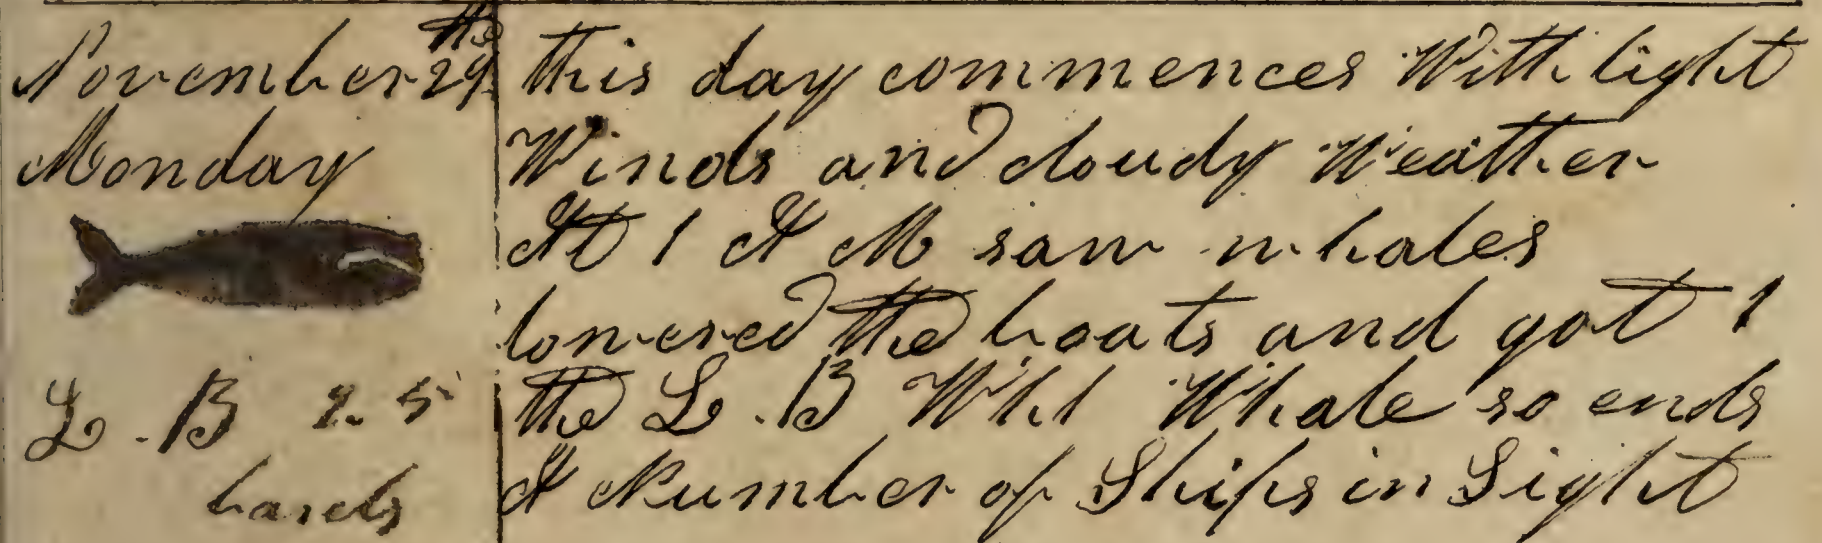 November 29the
Monday
L . B 25
barels
this day commences With light
Winds and cloudy Weather
At 1 A M saw whales
lowered the boats and got 1
the L . B Whl Whale so ends
A Number of Ships in Sight